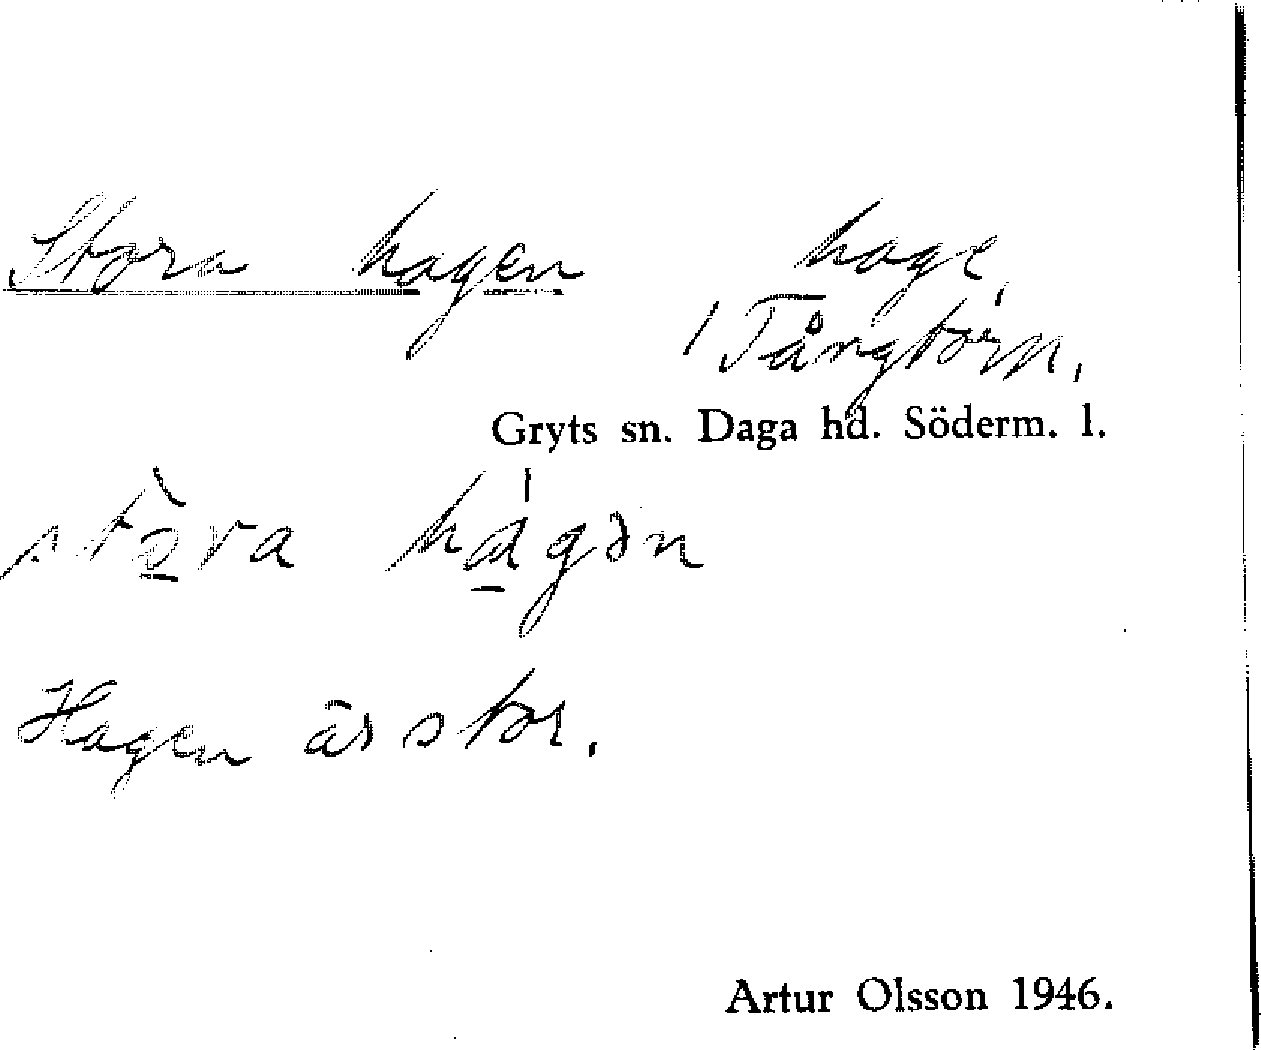 Stora hagen hage,
i Tångtörn,
Gryts sn. Daga hd. Söderm. l.
stò̲ra há̲gən
Hagen är stor.
Artur Olsson 1946.